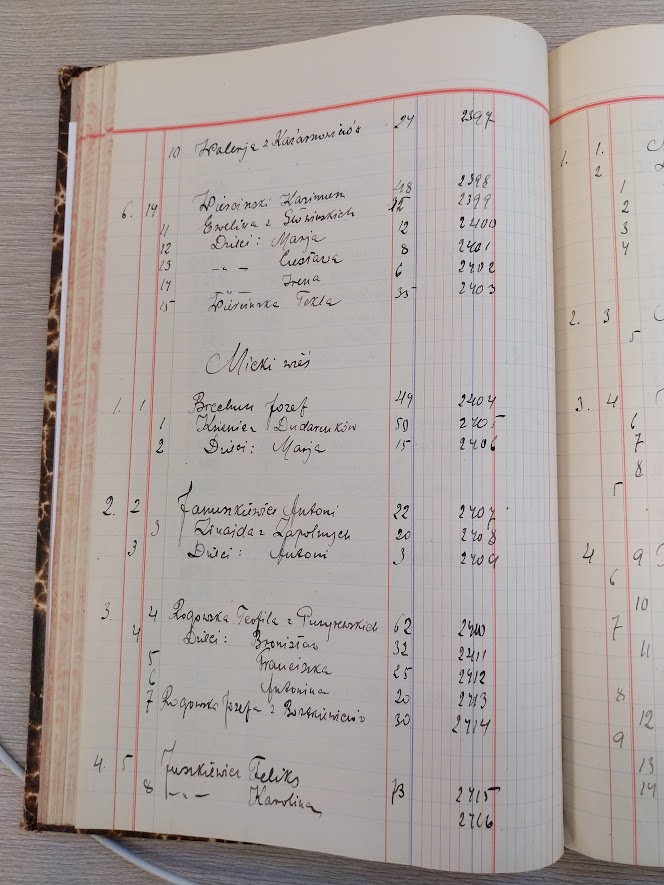 10 Walerja z Kazarnowiczów 27 2397
6. 19 Wieściński Kazimierz 48 2398
11 Ewelina z Głowińskich 2399
12 Dzieci: Marja 12 2400
13 -"- Gustawa 8 2401
14 -"- Irena 6 2402
15 Wieścińska Tekla 35 2403
Micki wieś
1. 1 Brechun Józef 49 2404
1 Ksienia z Dudarenków 50 2405
2 Dzieci: Marja 15 2406
2. 2 Januszkiewicz Antoni 22 2407
3 Zinaida z Zapolnych 20 2408
3 Dzieci: Antoni 3 2409
3. 4 Rogowska Teofila z Puzyrewskich 62 2410
4 Dzieci: Bronisław 32 2411
5 Franciszka 25 2412
6 Antonina 20 2413
7 Rogowska Józefa z Bortkiewiczów 30 2414
4. 5 Juszkiewicz Feliks 73 2415
8 -"- Karolina 2416
1. 1.
2
1
2
3
4
2. 3
5
3. 4
6
7
8
5
4 9
6
10
7
11
8
12
9
13
14